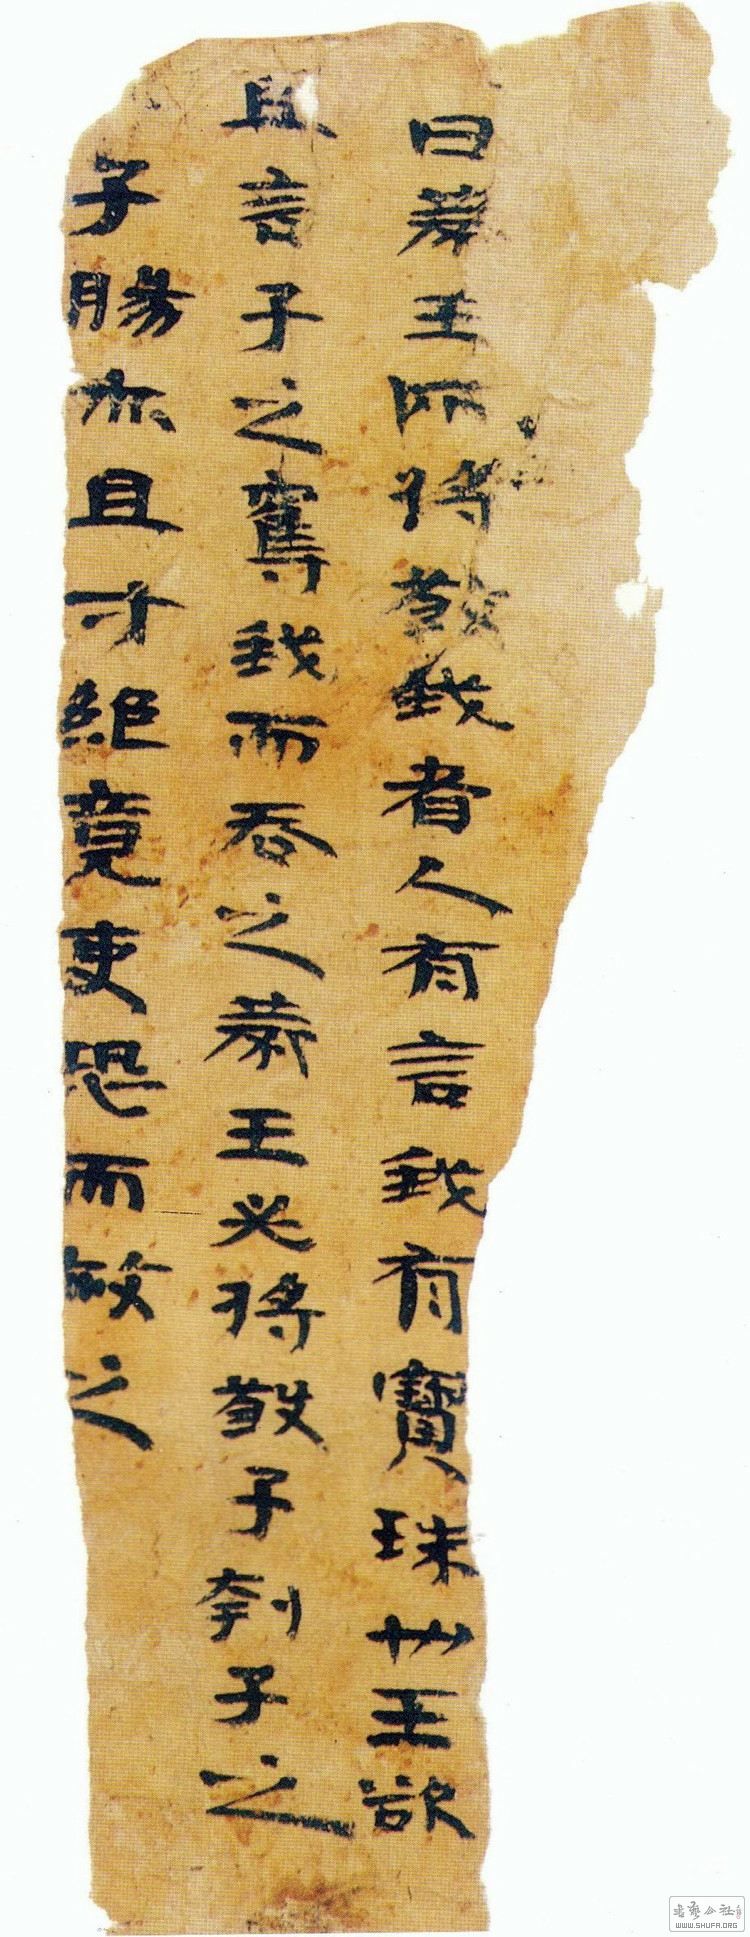 曰燕王所將殺我者人有言我有寶珠也王欲
且言子之奪我而吞之燕王必將殺子刳子之
子腸亦且寸絕竟吏恐而赦之
WWW.SHUFA.ORG